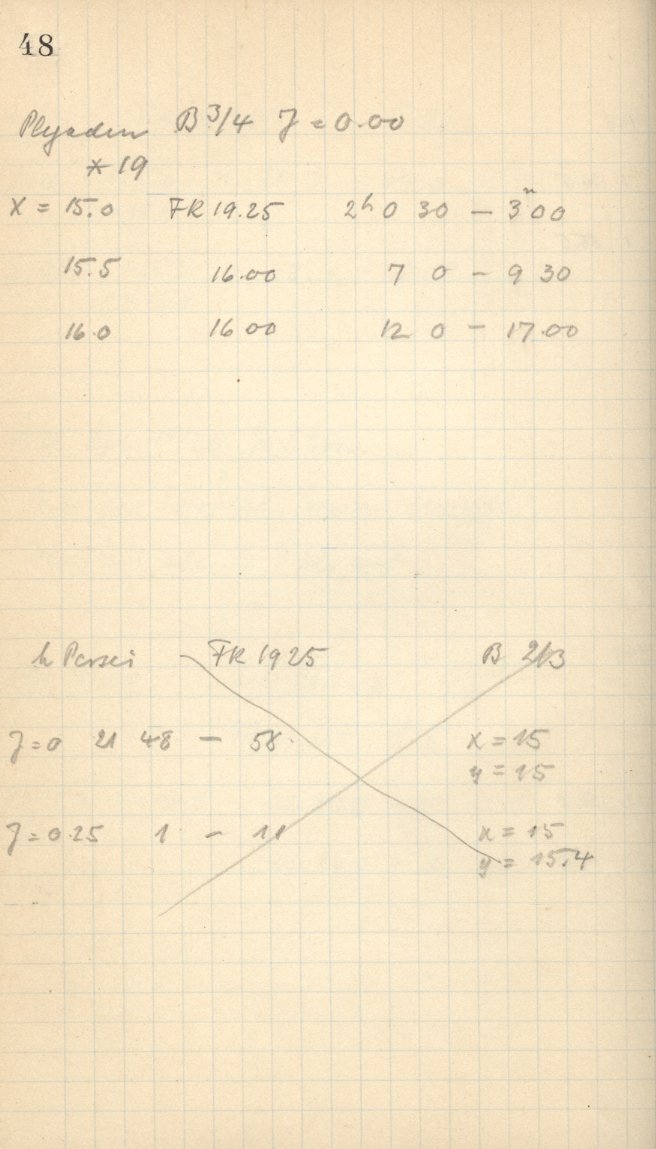 48
Plejaden B 3/4 J = 0.00
* 19
X = 15.0 FR 19.25 2h 0 30 — 3m 00
15.5 16.00 7 0 — 9 30
16.0 16 00 12 0 — 17.00
h Persei FR 1925 B 2/3
J = 0 21 48 — 58 x = 15
y = 15
J = 0.25 1 — 11 x = 15
y = 15.4